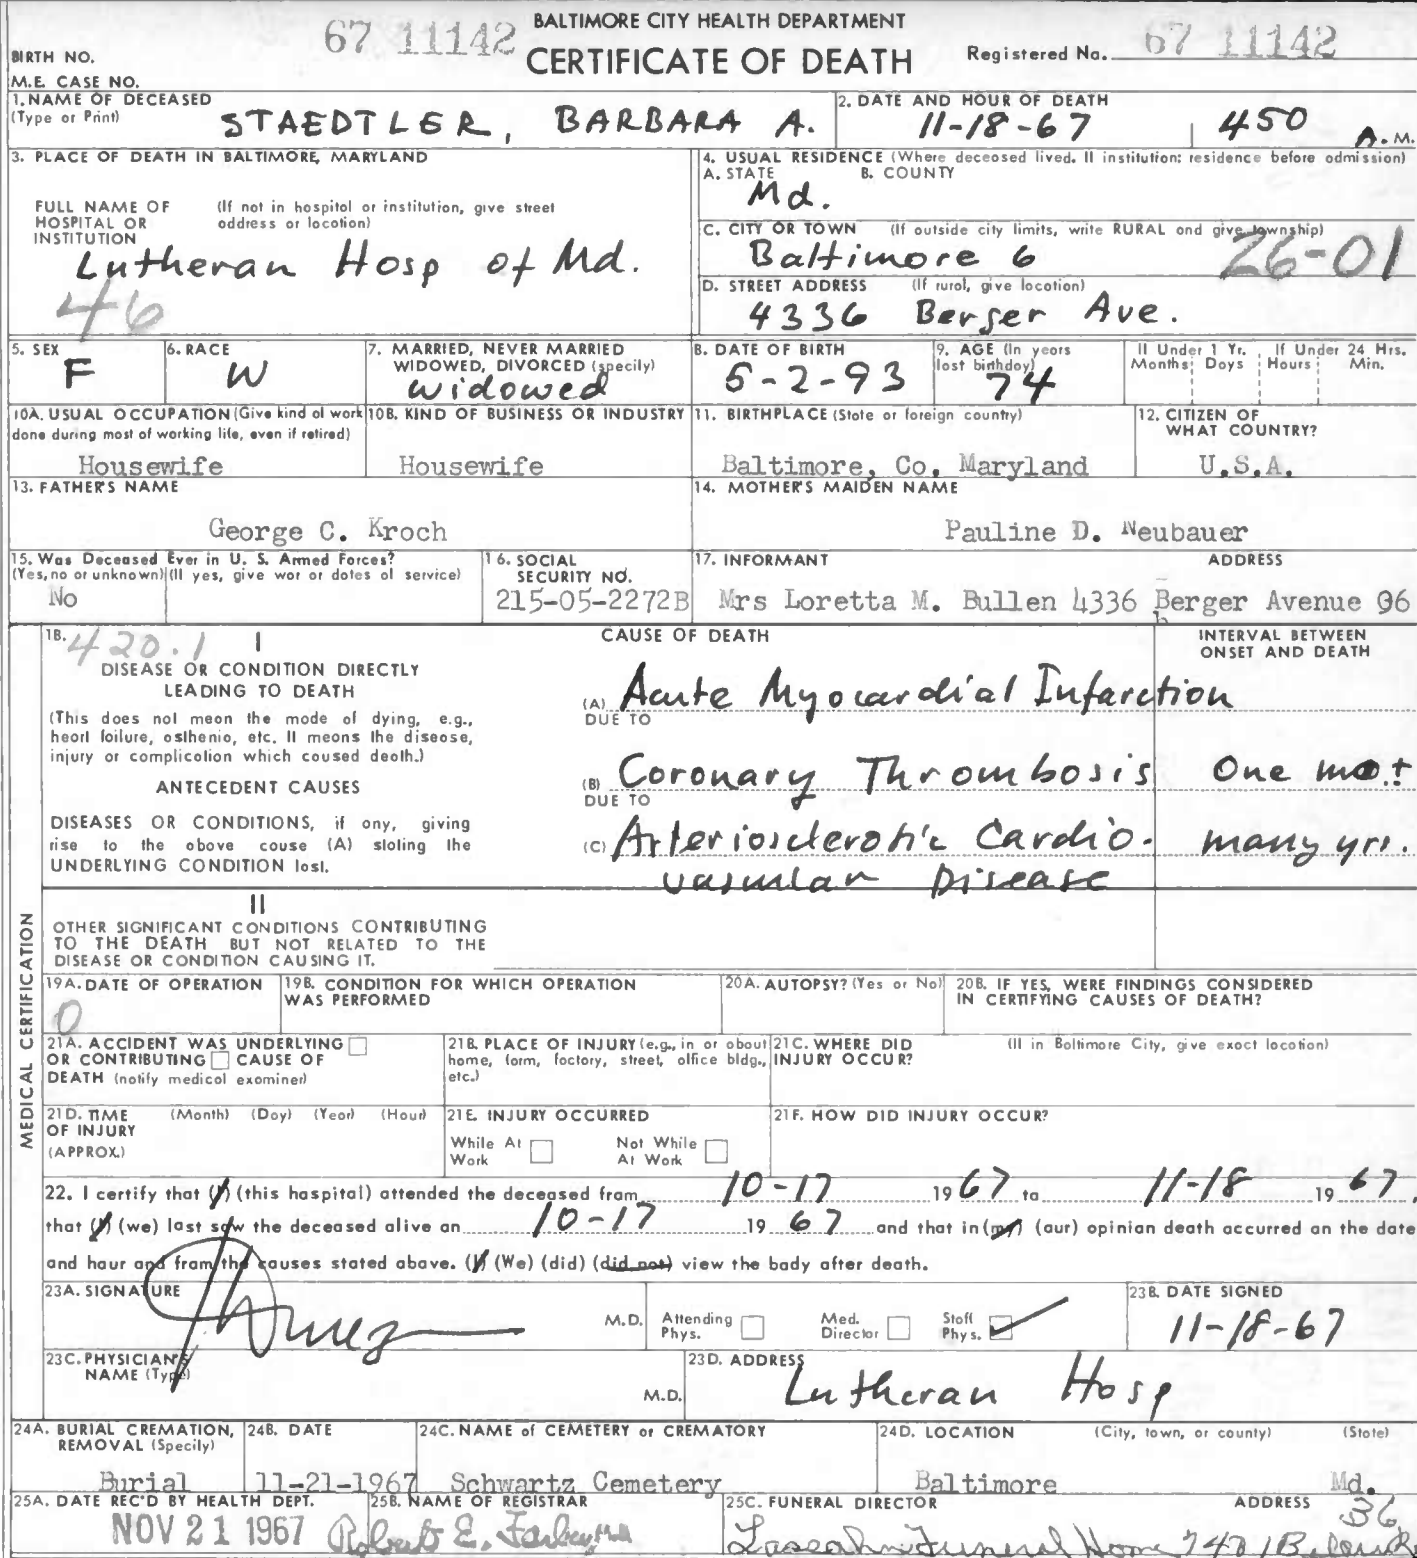 BALTIMORE CITY HEALTH DEPARTMENT
67 11142 CERTIFICATE OF DEATH Registered No. 67 11142
BIRTH NO.
M.E. CASE NO.
1. NAME OF DECEASED (Type or Print) STAEDTLER, BARBARA A.
2. DATE AND HOUR OF DEATH 11-18-67 450 A.M.
3. PLACE OF DEATH IN BALTIMORE, MARYLAND
FULL NAME OF HOSPITAL OR INSTITUTION (If not in hospital or institution, give street address or location)
Lutheran Hosp of Md.
46
4. USUAL RESIDENCE (Where deceased lived. If institution: residence before admission)
A. STATE B. COUNTY
Md.
C. CITY OR TOWN (If outside city limits, write RURAL and give township)
Baltimore 6 26-01
D. STREET ADDRESS (If rural, give location)
4336 Berger Ave.
5. SEX F
6. RACE W
7. MARRIED, NEVER MARRIED WIDOWED, DIVORCED (specify) Widowed
8. DATE OF BIRTH 5-2-93
9. AGE (In years last birthday) 74
If Under 1 Yr. Months Days If Under 24 Hrs. Hours Min.
10A. USUAL OCCUPATION (Give kind of work done during most of working life, even if retired) Housewife
10B. KIND OF BUSINESS OR INDUSTRY Housewife
11. BIRTHPLACE (State or foreign country) Baltimore, Co. Maryland
12. CITIZEN OF WHAT COUNTRY? U.S.A.
13. FATHER'S NAME George C. Kroch
14. MOTHER'S MAIDEN NAME Pauline D. Neubauer
15. Was Deceased Ever in U. S. Armed Forces? (Yes, no or unknown) (If yes, give war or dates of service) No
16. SOCIAL SECURITY NO. 215-05-2272B
17. INFORMANT ADDRESS
Mrs Loretta M. Bullen 4336 Berger Avenue 06
MEDICAL CERTIFICATION
18. 420.1 I CAUSE OF DEATH INTERVAL BETWEEN ONSET AND DEATH
DISEASE OR CONDITION DIRECTLY LEADING TO DEATH
(This does not mean the mode of dying, e.g., heart failure, asthenia, etc. It means the disease, injury or complication which caused death.)
(A) Acute Myocardial Infarction
DUE TO
ANTECEDENT CAUSES
(B) Coronary Thrombosis One mo.±
DUE TO
DISEASES OR CONDITIONS, if any, giving rise to the above cause (A) stating the UNDERLYING CONDITION last.
(C) Arteriosclerotic Cardio- many yrs.
vascular Disease
II
OTHER SIGNIFICANT CONDITIONS CONTRIBUTING TO THE DEATH BUT NOT RELATED TO THE DISEASE OR CONDITION CAUSING IT.
19A. DATE OF OPERATION 0
19B. CONDITION FOR WHICH OPERATION WAS PERFORMED
20A. AUTOPSY? (Yes or No)
20B. IF YES, WERE FINDINGS CONSIDERED IN CERTIFYING CAUSES OF DEATH?
21A. ACCIDENT WAS UNDERLYING OR CONTRIBUTING CAUSE OF DEATH (notify medical examiner)
21B. PLACE OF INJURY (e.g., in or about home, farm, factory, street, office bldg., etc.)
21C. WHERE DID INJURY OCCUR? (If in Baltimore City, give exact location)
21D. TIME OF INJURY (APPROX.) (Month) (Day) (Year) (Hour)
21E. INJURY OCCURRED
While At Work Not While At Work
21F. HOW DID INJURY OCCUR?
22. I certify that (I) (this hospital) attended the deceased from 10-17 1967 to 11-18 1967,
that (I) (we) last saw the deceased alive on 10-17 1967 and that in (my) (our) opinion death occurred on the date
and hour and from the causes stated above. (I) (We) (did) (did not) view the body after death.
23A. SIGNATURE M.D. Attending Phys. Med. Director Staff Phys.
23B. DATE SIGNED 11-18-67
23C. PHYSICIAN'S NAME (Type) M.D.
23D. ADDRESS Lutheran Hosp
24A. BURIAL CREMATION, REMOVAL (Specify) Burial
24B. DATE 11-21-1967
24C. NAME of CEMETERY or CREMATORY Schwartz Cemetery
24D. LOCATION (City, town, or county) (State) Baltimore Md.
25A. DATE REC'D BY HEALTH DEPT. NOV 21 1967
25B. NAME OF REGISTRAR Robert E. Farber, M.D.
25C. FUNERAL DIRECTOR ADDRESS 36
Funeral Home 7401